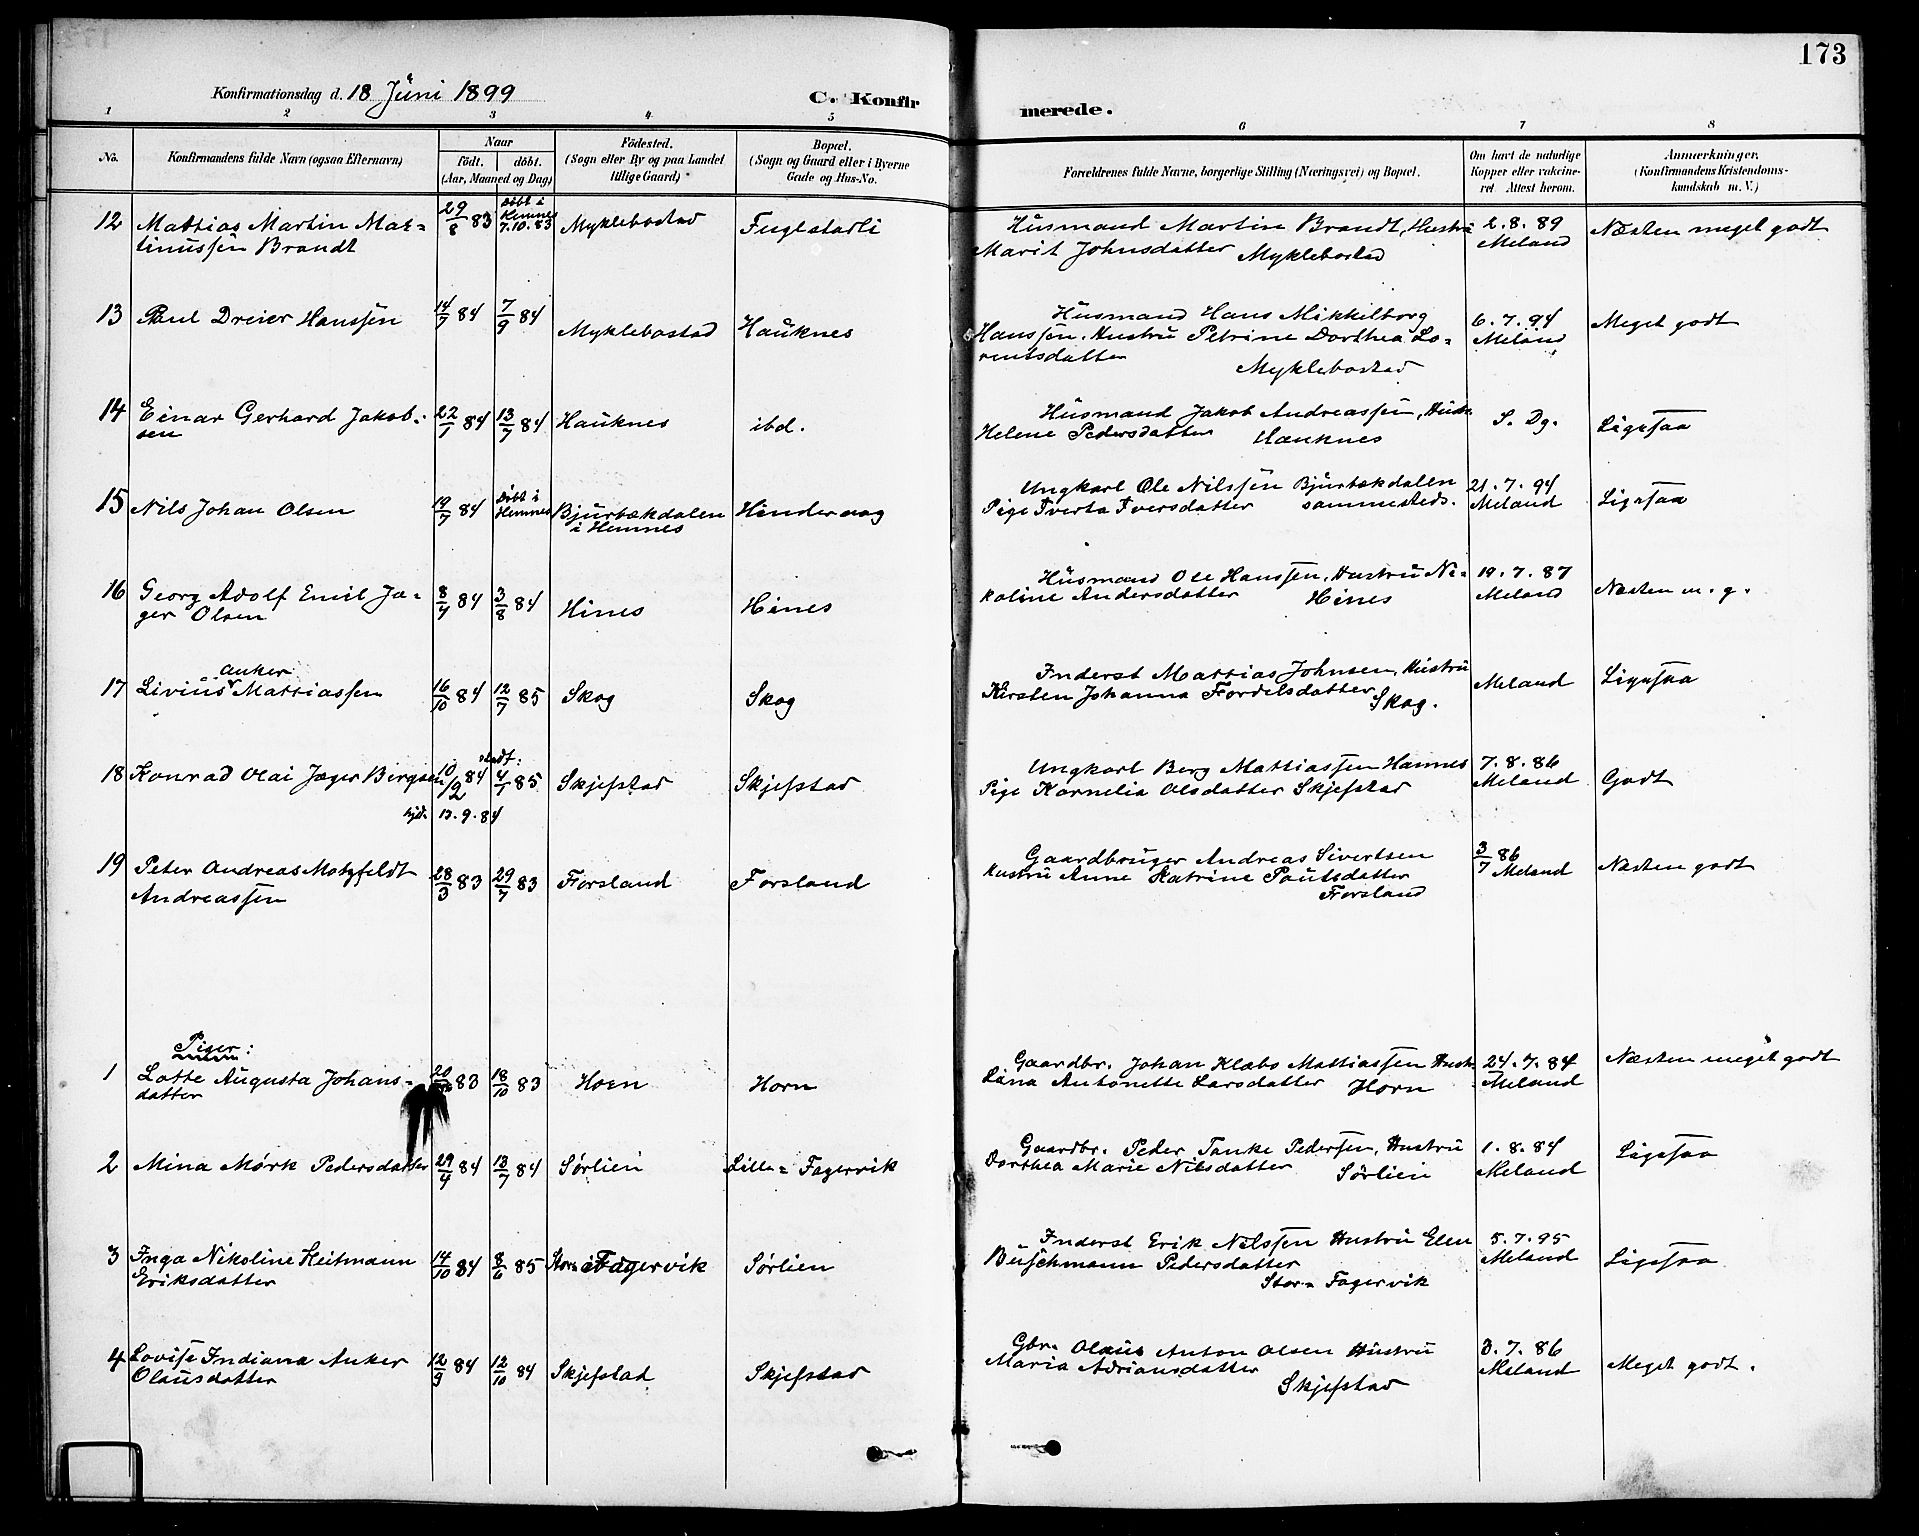 173
Konfirmationsdag d. 18 Juni 1899
C. Konfirmerede.
1 2 3 4 5 6 7 8
No.
Konfirmandens fulde Navn (ogsaa Efternavn)
Naar
født. døbt.
(Aar, Maaned og Dag)
Födested.
(Sogn eller By og paa Landet
tillige Gaard)
Bopæl.
(Sogn og Gaard eller i Byerne
Gade og Hus-No.
Forældrenes fulde Navne, borgerlige Stilling (Næringsvei) og Bopæl.
Om havt de naturlige
Kopper eller vakcine-
ret. Attest herom.
Anmærkninger.
(Konfirmandens Kristendoms-
kundskab m. V.)
12 Mattias Martin Mar-
tinussen Brandt
29/8 83
Døbt i
Hemnes
7.10.83
Myklebostad
Fuglstadli
Husmand Martin Brandt, Hustru
Marit Johnsdatter Myklebostad
2.8.89
Meland
Næsten meget godt
13 Paul Dreier Hanssen
14/7 84 7/9 84
Myklebostad
Hauknes
Husmand Hans Mikkelborg
Hanssen. Hustru Petrine Dorthea Lo-
rentsdatter
Myklebostad
6.7.94
Meland
Meget godt
14 Einar Gerhard Jakob-
sen
22/1 84 13/7 84
Hauknes
ibd.
Husmand Jakob Andreassen, Hustr.
Helene Pedersdatter Hauknes
S. Dg.
Ligesaa
15 Nils Johan Olsen
19/7 84
Døbt i
Hemnes
Bjurbækdalen
i Hemnes
Hindernag
Ungkarl Ole Nilssen Bjurbækdalen
Pige Iverta Iversdatter sammesteds.
21.7.94
Meland
Ligesaa
16 Georg Adolf Emil Jæ-
ger Olsen
8/7 84 3/8 84
Hines
Hines
Husmand Ole Hanssen, Hustru Ni-
koline Andersdatter Hines
19.7.87
Meland
Næsten m. g.
Anker
17 Livius Mattiassen
16/10 84 12/7 85
Skog
Skog
Inderst Mattias Johnsen, Hustru
Kirsten Johanna Fordelsdatter
Skog.
Meland
Ligesaa
18 Konrad Olai Jæger Bergsen
10/2 84
stadf:
4/7 85
hjd. 13.9.84
Skjefstad
Skjefstad
Ungkarl Berg Mattiassen Hamnes
Pige Kornelia Olsdatter Skjefstad
7.8.86
Meland
Godt
19 Peter Andreas Motzfeldt
Andreassen
28/3 83 29/7 83
Forsland
Forsland
Gaardbruger Andreas Sivertsen
Hustru Anne Katrine Paulsdatter
Forsland
3/7 86
Meland
Næsten godt
Piger:
1 Lotte Augusta Johans-
datter
83 18/10 83
Horn
Horn
Gaardbr. Johan Klæbo Mattiassen Hustr.
Lina Antonette Larsdatter Horn
24.7.84
Meland
Næsten meget godt
2 Mina Mørk Pedersdatter
29/4 84 13/7 84
Sørlien
Lille-Fagervik
Gaardbr. Peder Tanke Pedersen, Hustru
Dorthea Marie Nilsdatter
Sørlien
1.8.84
Meland
Ligesaa
3 Inga Nikoline Heitmann
Eriksdatter
14/10 84 8/6 85
Stor-Fagervik
Sørlien
Inderst Erik Nilssen Hustru Elen
Buschmann Pedersdatter
Stor-Fagervik
5.7.95
Meland
Ligesaa
4 Lovise Indiana Anker
Olausdatter
12/9 84 12/10 84
Skjefstad
Skjefstad
Gbr. Olaus Anton Olsen Hustru
Maria Adriansdatter
Skjefstad
3.7.86
Meland
Meget godt.